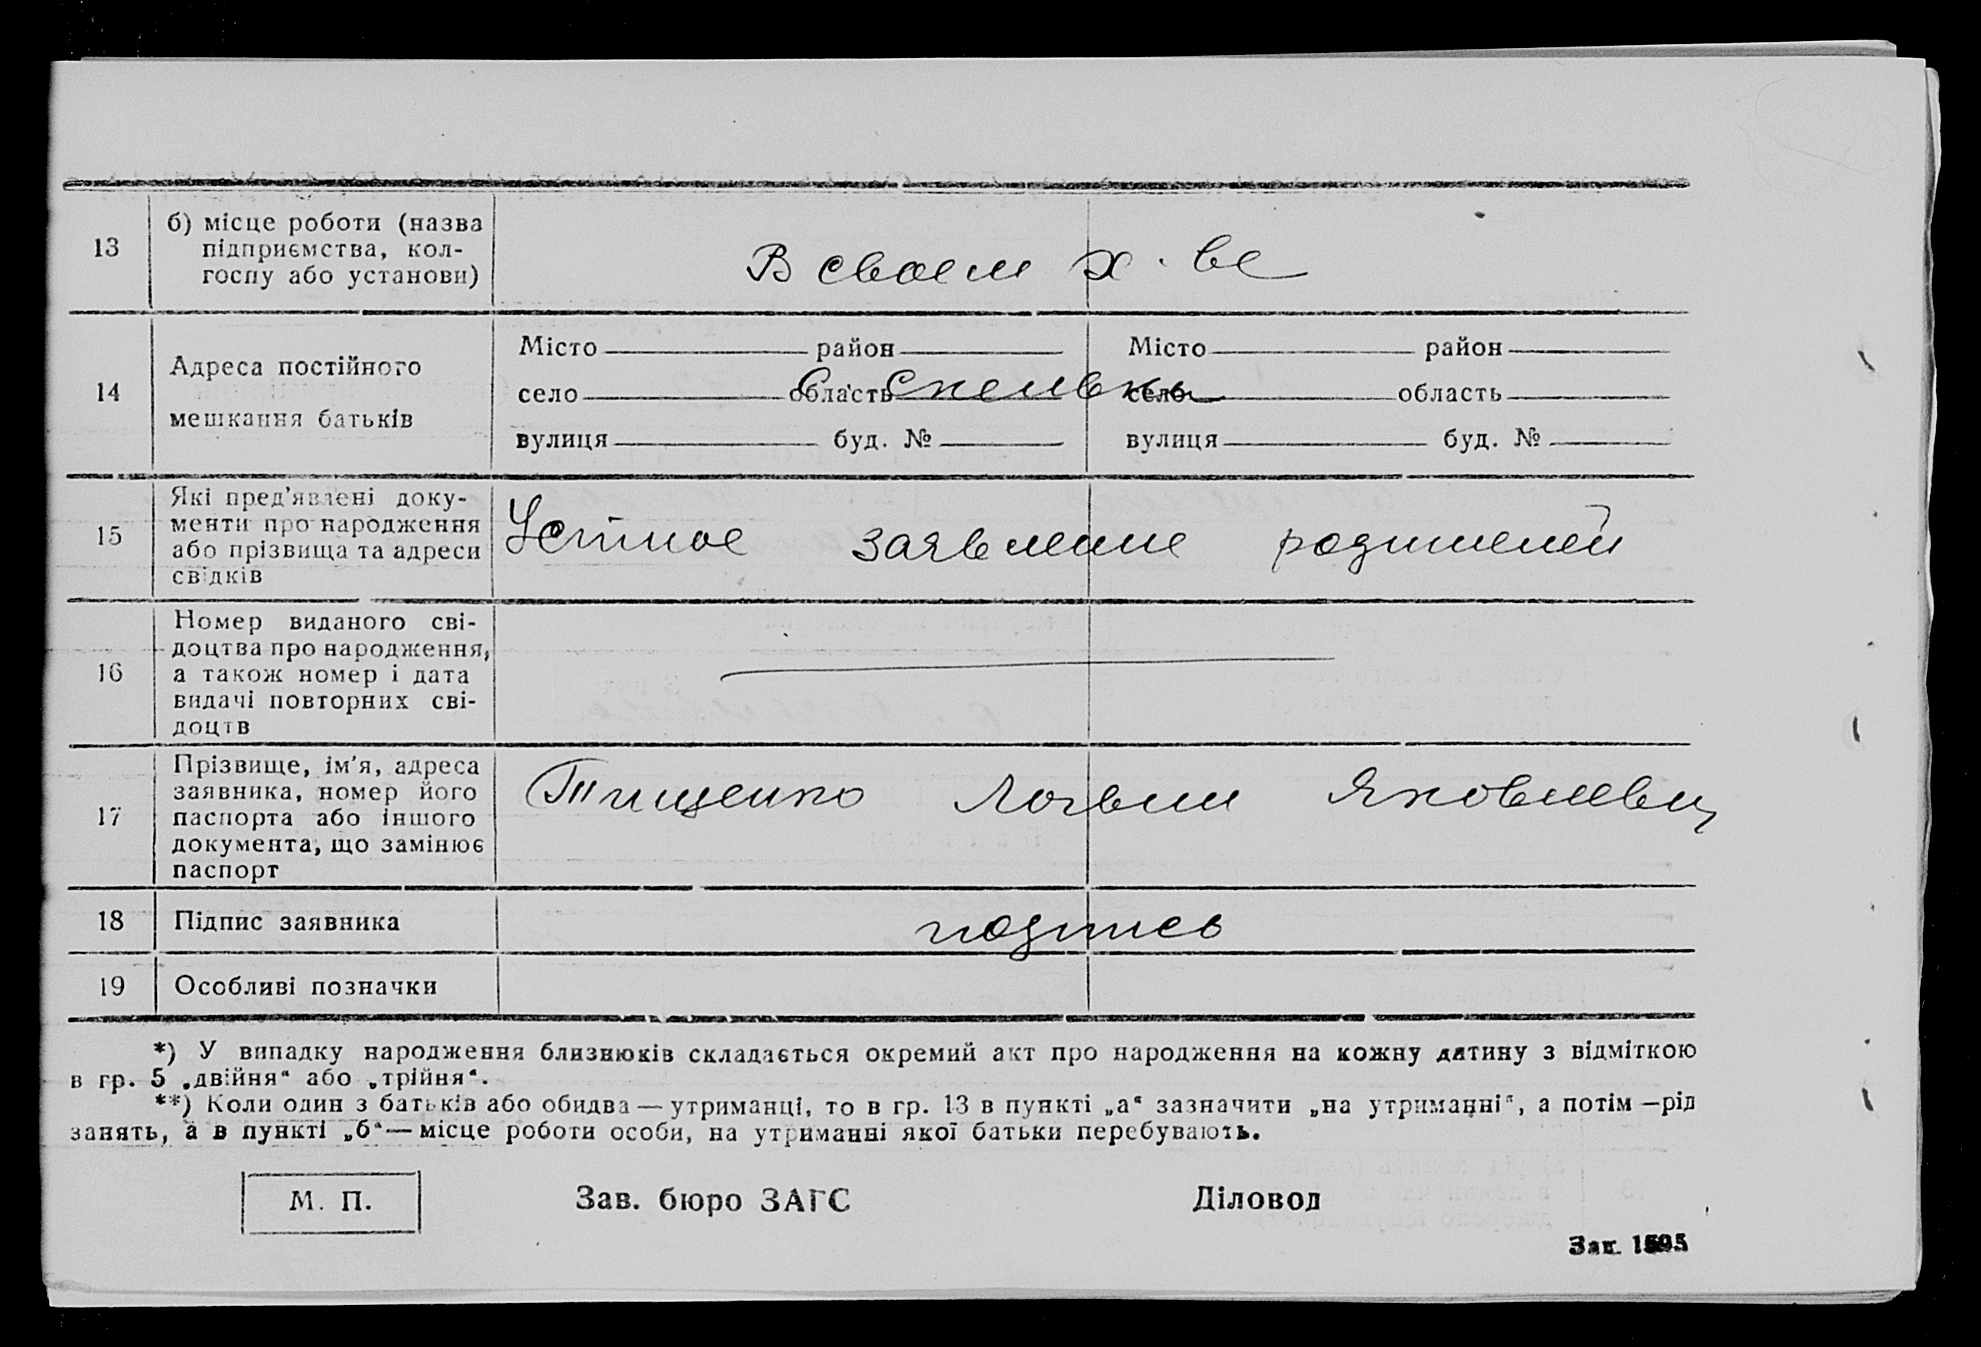 13
б) місце роботи (назва
підприємства, кол-
госпу або установи)
В своем х-ве
14
Адреса постійного
мешкання батьків
Місто район
село область
вулиця буд. №
Місто район
село область
вулиця буд. №
15
Які пред'явлені доку-
менти про народження
або прізвища та адреси
свідків
Устное заявление родителей
16
Номер виданого сві-
доцтва про народження,
а також номер і дата
видачі повторних сві-
доцтв
17
Прізвище, ім'я, адреса
заявника, номер його
паспорта або іншого
документа, що замінює
паспорт
Тищенко Логвин Яковлевич
18
Підпис заявника
подпись
19
Особливі позначки
*) У випадку народження близнюків складається окремий акт про народження на кожну дитину з відміткою
в гр. 5 „двійня“ або „трійня“.
**) Коли один з батьків або обидва — утриманці, то в гр. 13 в пункті „а“ зазначити „на утриманні“, а потім — рід
занять, а в пункті „б“ — місце роботи особи, на утриманні якої батьки перебувають.
М. П.
Зав. бюро ЗАГС
Діловод
Зак.